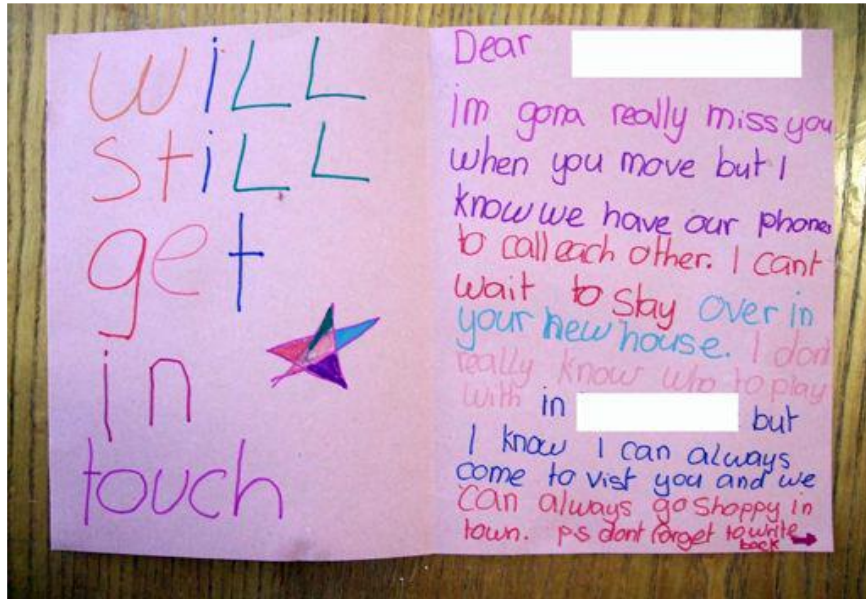 wiLL
stiLL
get
in
touch
Dear
im gona really miss you
when you move but I
know we have our phones
to call each other. I cant
wait to stay over in
your new house. I dont
really know who to play
with in but
I know I can always
come to vist you and we
can always go shoppy in
town. ps dont forget to write
back